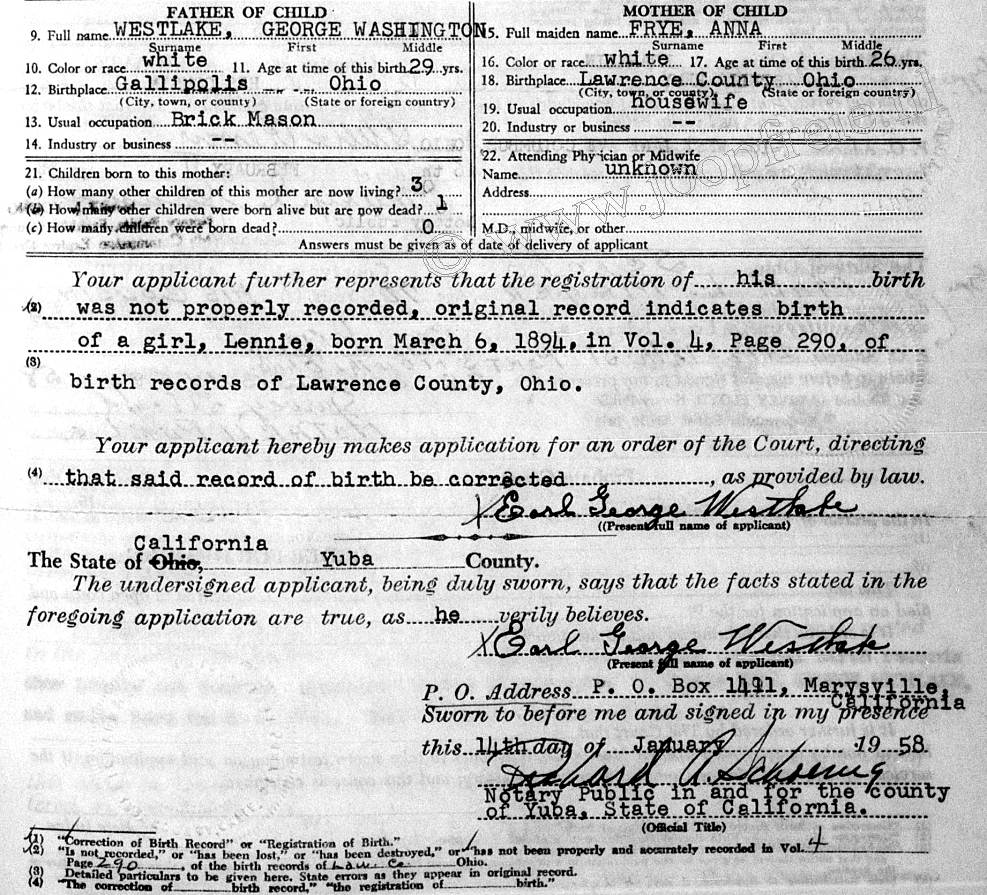 FATHER OF CHILD
9. Full name WESTLAKE, GEORGE WASHINGTON
Surname First Middle
10. Color or race white 11. Age at time of this birth 29 yrs.
12. Birthplace Gallipolis Ohio
(City, town, or county) (State or foreign country)
13. Usual occupation Brick Mason
14. Industry or business --
MOTHER OF CHILD
15. Full maiden name FRYE, ANNA
Surname First Middle
16. Color or race white 17. Age at time of this birth 26 yrs.
18. Birthplace Lawrence County Ohio
(City, town, or county) (State or foreign country)
19. Usual occupation housewife
20. Industry or business --
21. Children born to this mother:
(a) How many other children of this mother are now living? 3
(b) How many other children were born alive but are now dead? 1
(c) How many children were born dead? 0
22. Attending Physician or Midwife
Name unknown
Address
M.D., midwife, or other
Answers must be given as of date of delivery of applicant
Your applicant further represents that the registration of his birth
(2) was not properly recorded, original record indicates birth
of a girl, Lennie, born March 6, 1894, in Vol. 4, Page 290, of
(3)
birth records of Lawrence County, Ohio.
Your applicant hereby makes application for an order of the Court, directing
(4) that said record of birth be corrected, as provided by law.
Earl George Westlake
(Present full name of applicant)
California
The State of Ohio, Yuba County.
The undersigned applicant, being duly sworn, says that the facts stated in the
foregoing application are true, as he verily believes.
Earl George Westlake
(Present full name of applicant)
P. O. Address P. O. Box 1491, Marysville,
California
Sworn to before me and signed in my presence
this 14th day of January 1958
Richard A. Schoenig
Notary Public in and for the county
of Yuba, State of California.
(Official Title)
(1) "Correction of Birth Record" or "Registration of Birth."
(2) "Is not recorded," or "has been lost," or "has been destroyed," or "has not been properly and accurately recorded in Vol. 4
Page 290, of the birth records of Lawrence Ohio.
(3) Detailed particulars to be given here. State errors as they appear in original record.
(4) "The correction of birth record," "the registration of birth."